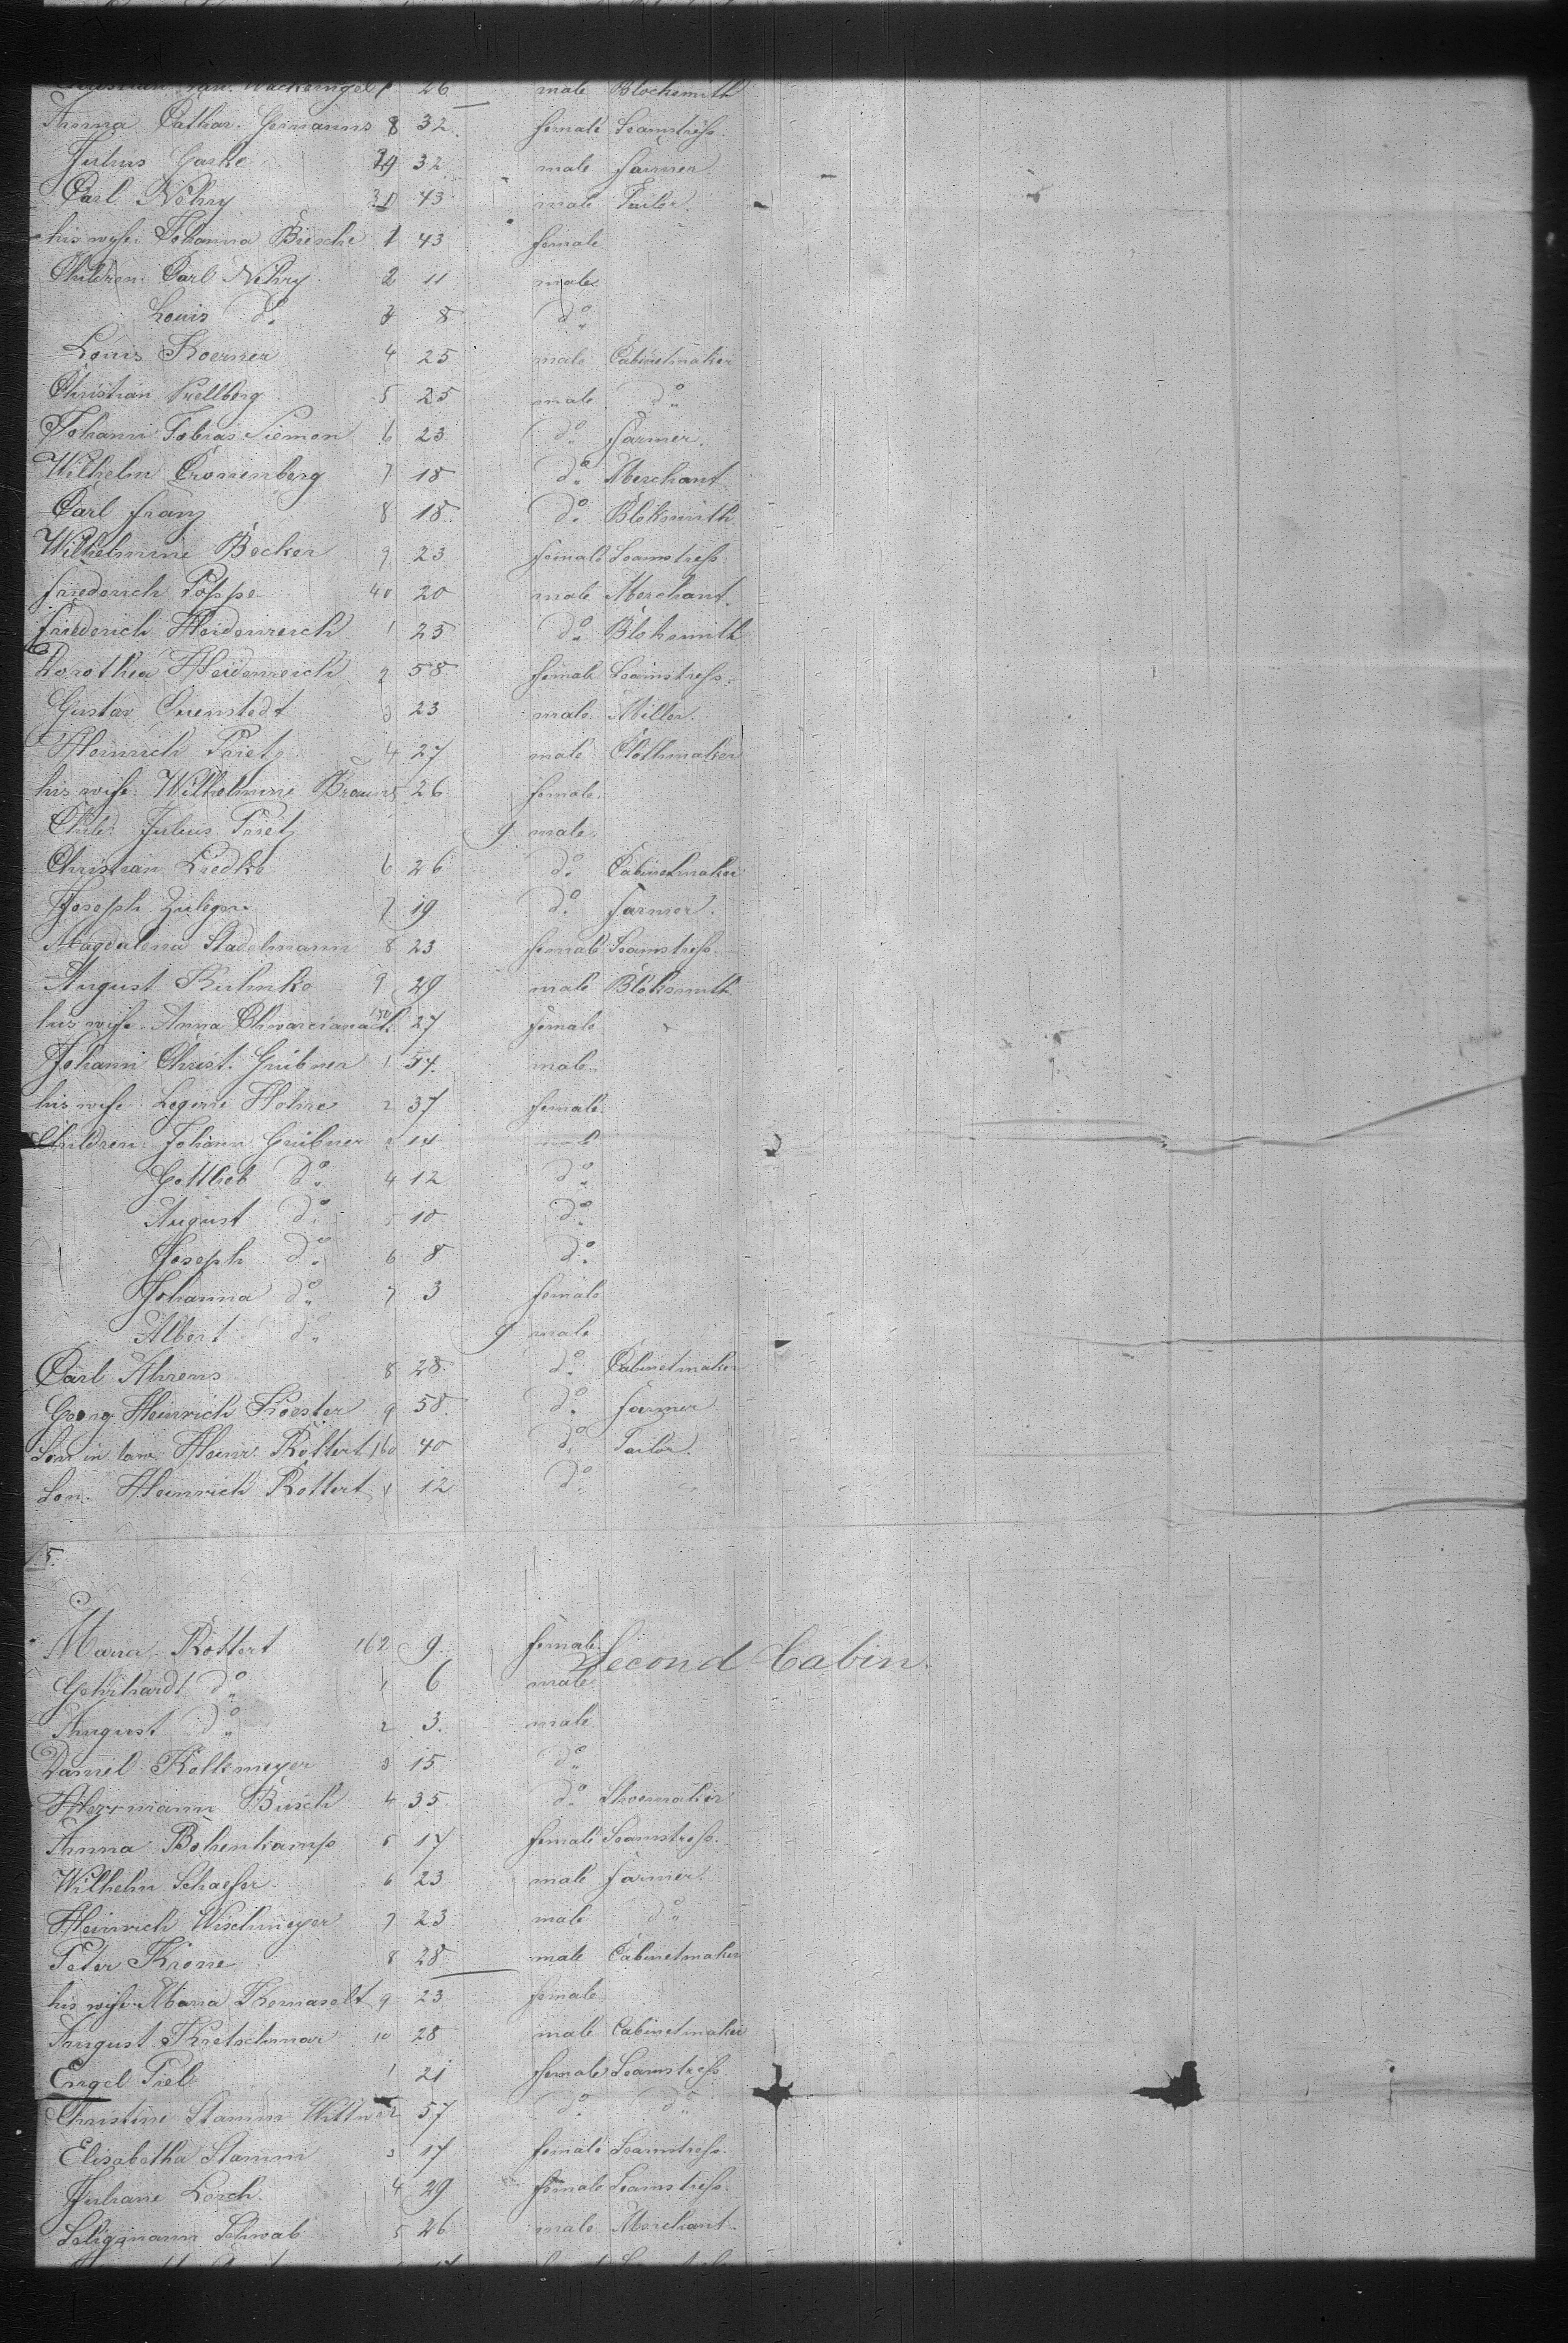 26 male Blocksmith
Anna Cathar. Germanns 8 32 female Seamstress.
Julius Garke 29 32 male farmer.
Carl Nehry 30 43 male Tailor.
his wife: Johanna Büsche 1 43 female
Children: Carl Nehry 2 11 male
Louis do. 3 8 do
Louis Koerner 4 25 male Cabinetmaker
Christian 5 25 male do
Johann Tobias Siemon 6 23 do. farmer.
Wilhelm Cronenberg 7 18 do. Merchant
Carl Franz 8 18 do. Bloksmith
Wilhelmine Becker 9 23 female Seamstress
Friederich Poppe 40 20 male Merchant.
Friederich Heidenreich 1 25 do Bloksmith
Dorothea Heidenreich 2 58 female Seamstress.
Gustav Quenstedt 3 23 male Miller.
Heinrich Prietz 4 27 male Clothmaker
his wife: Wilhelmine Braun 5 26 female.
Child: Julius Prietz 9 male.
Christian Liedke 6 26 do. Cabinetmaker
Joseph 7 19 do. farmer.
Magdalena Stadelmann 8 23 female Seamstress.
August Kuhnke 9 29 male Bloksmith
his wife: Anna 150 27 female
Johann Christ. Grübner 1 54. male
his wife: Hohne 2 37 female.
Children: Johann Grübner 3 14 male
Gottlieb do. 4 12 do
August do. 5 10 do.
Joseph do. 6 8 do.
Johanna do 7 3 female
Albert do 9 male
Carl Ahrens 8 28. do. Cabinetmaker
Georg Heinrich Koester 9 58. do. farmer
Son in law Heinr. Rottert 160 40 do. Tailor.
Son. Heinrich Rottert 1 12 do.
5.
Maria Rottert 162 9. female.
Second Cabin.
Gehrhardt do 1 6 male.
August do 2 3. male.
Daniel Kollemeyer 3 15 do
Herrmann Busch 4 35. do. Shoemaker
Anna Bohenkamp 5 17 female Seamstress.
Wilhelm Schaefer 6 23 male farmer.
Heinrich Wischmeyer 7 23 male do
Peter Krone 8 28 male Cabinetmaker
his wife: Maria 9 23 female
August Kretschmar 10 28 male Cabinetmaker
Engel Piel 1 21 female Seamstress
Christine Stamm Wittwe 2 57 do. do
Elisabetha Stamm 3 17 female Seamstress.
Juliane Lorch. 4 29 female Seamstress.
Seligmann Schwab 5 26 male Merchant.